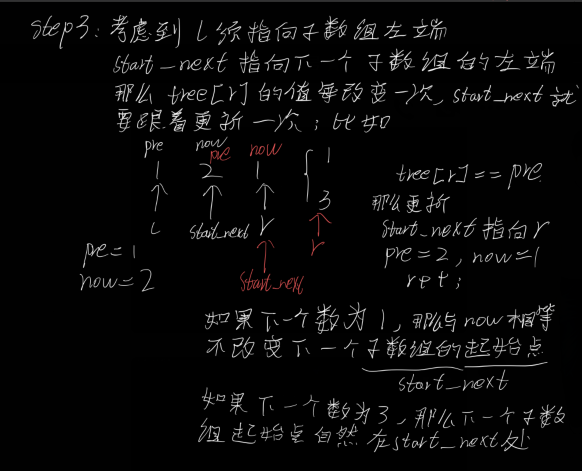 step3: 考虑到 L 须指向子数组左端
start_next 指向下一个子数组的左端
那么 tree[r] 的值每改变一次, start_next 就
要跟着更新一次; 比如
pre now pre now
1 2 1 { 1
3
L start_next r r
start_next
pre=1
now=2
tree[r]==pre
那么更新
start_next 指向 r
pre=2, now=1
r++;
如果下一个数为 1, 那么与 now 相等
不改变下一个子数组的起始点
start_next
如果下一个数为 3, 那么下一个子数
组起始点自然在 start_next 处